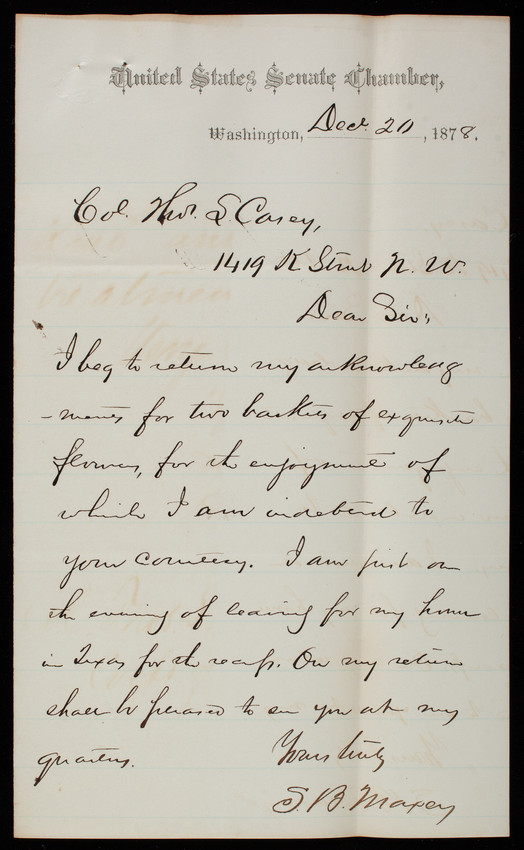 United States Senate Chamber,
Washington, Dec. 20, 1878.
Col. Thos. L. Casey,
1419 K Street N. W.
Dear Sir;
I beg to return my acknowledg
-ments for two baskets of exquisite
flowers, for the enjoyment of
which I am indebted to
your courtesy. I am just on
the evening of leaving for my home
in Texas for the recess. On my return
shall be pleased to see you at my
quarters. Yours truly
S. B. Maxey